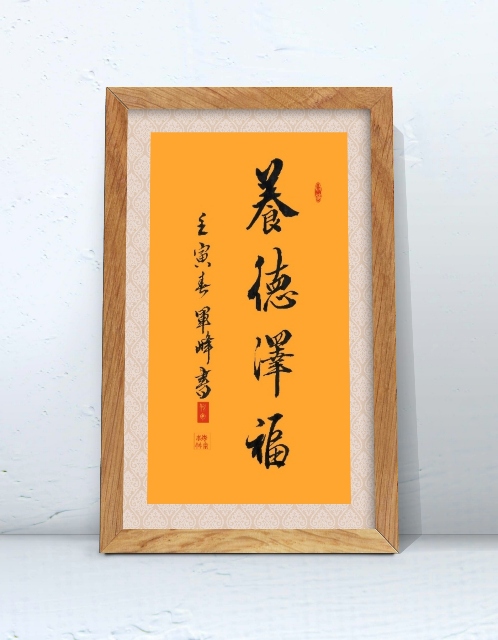 養德澤福
壬寅春軍峰書